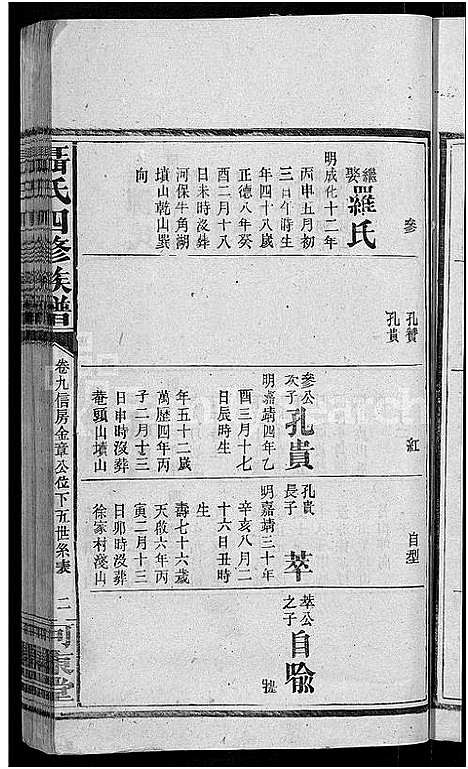 參
孔賛
孔貴
紅
自型
繼娶羅氏
明成化十二年
丙申五月初
三日午時生
年四十八歲
正德八年癸
酉二月十八
日未時沒葬
河保牛角湖
墳山乾山巽
向
參公次子孔貴
明嘉靖四年乙
酉三月十七
日辰時生
年五十二歲
萬歷四年丙
子二月十三
日申時沒葬
菴頭山墳山
孔貴長子萃
明嘉靖三十年
辛亥八月二
十六日丑時
生
壽七十六歲
天啟六年丙
寅二月十三
日卯時沒葬
徐家村淺山
萃公之子自喩
聶氏四修族譜
卷九信房金章公位下五世系表
二
河東堂